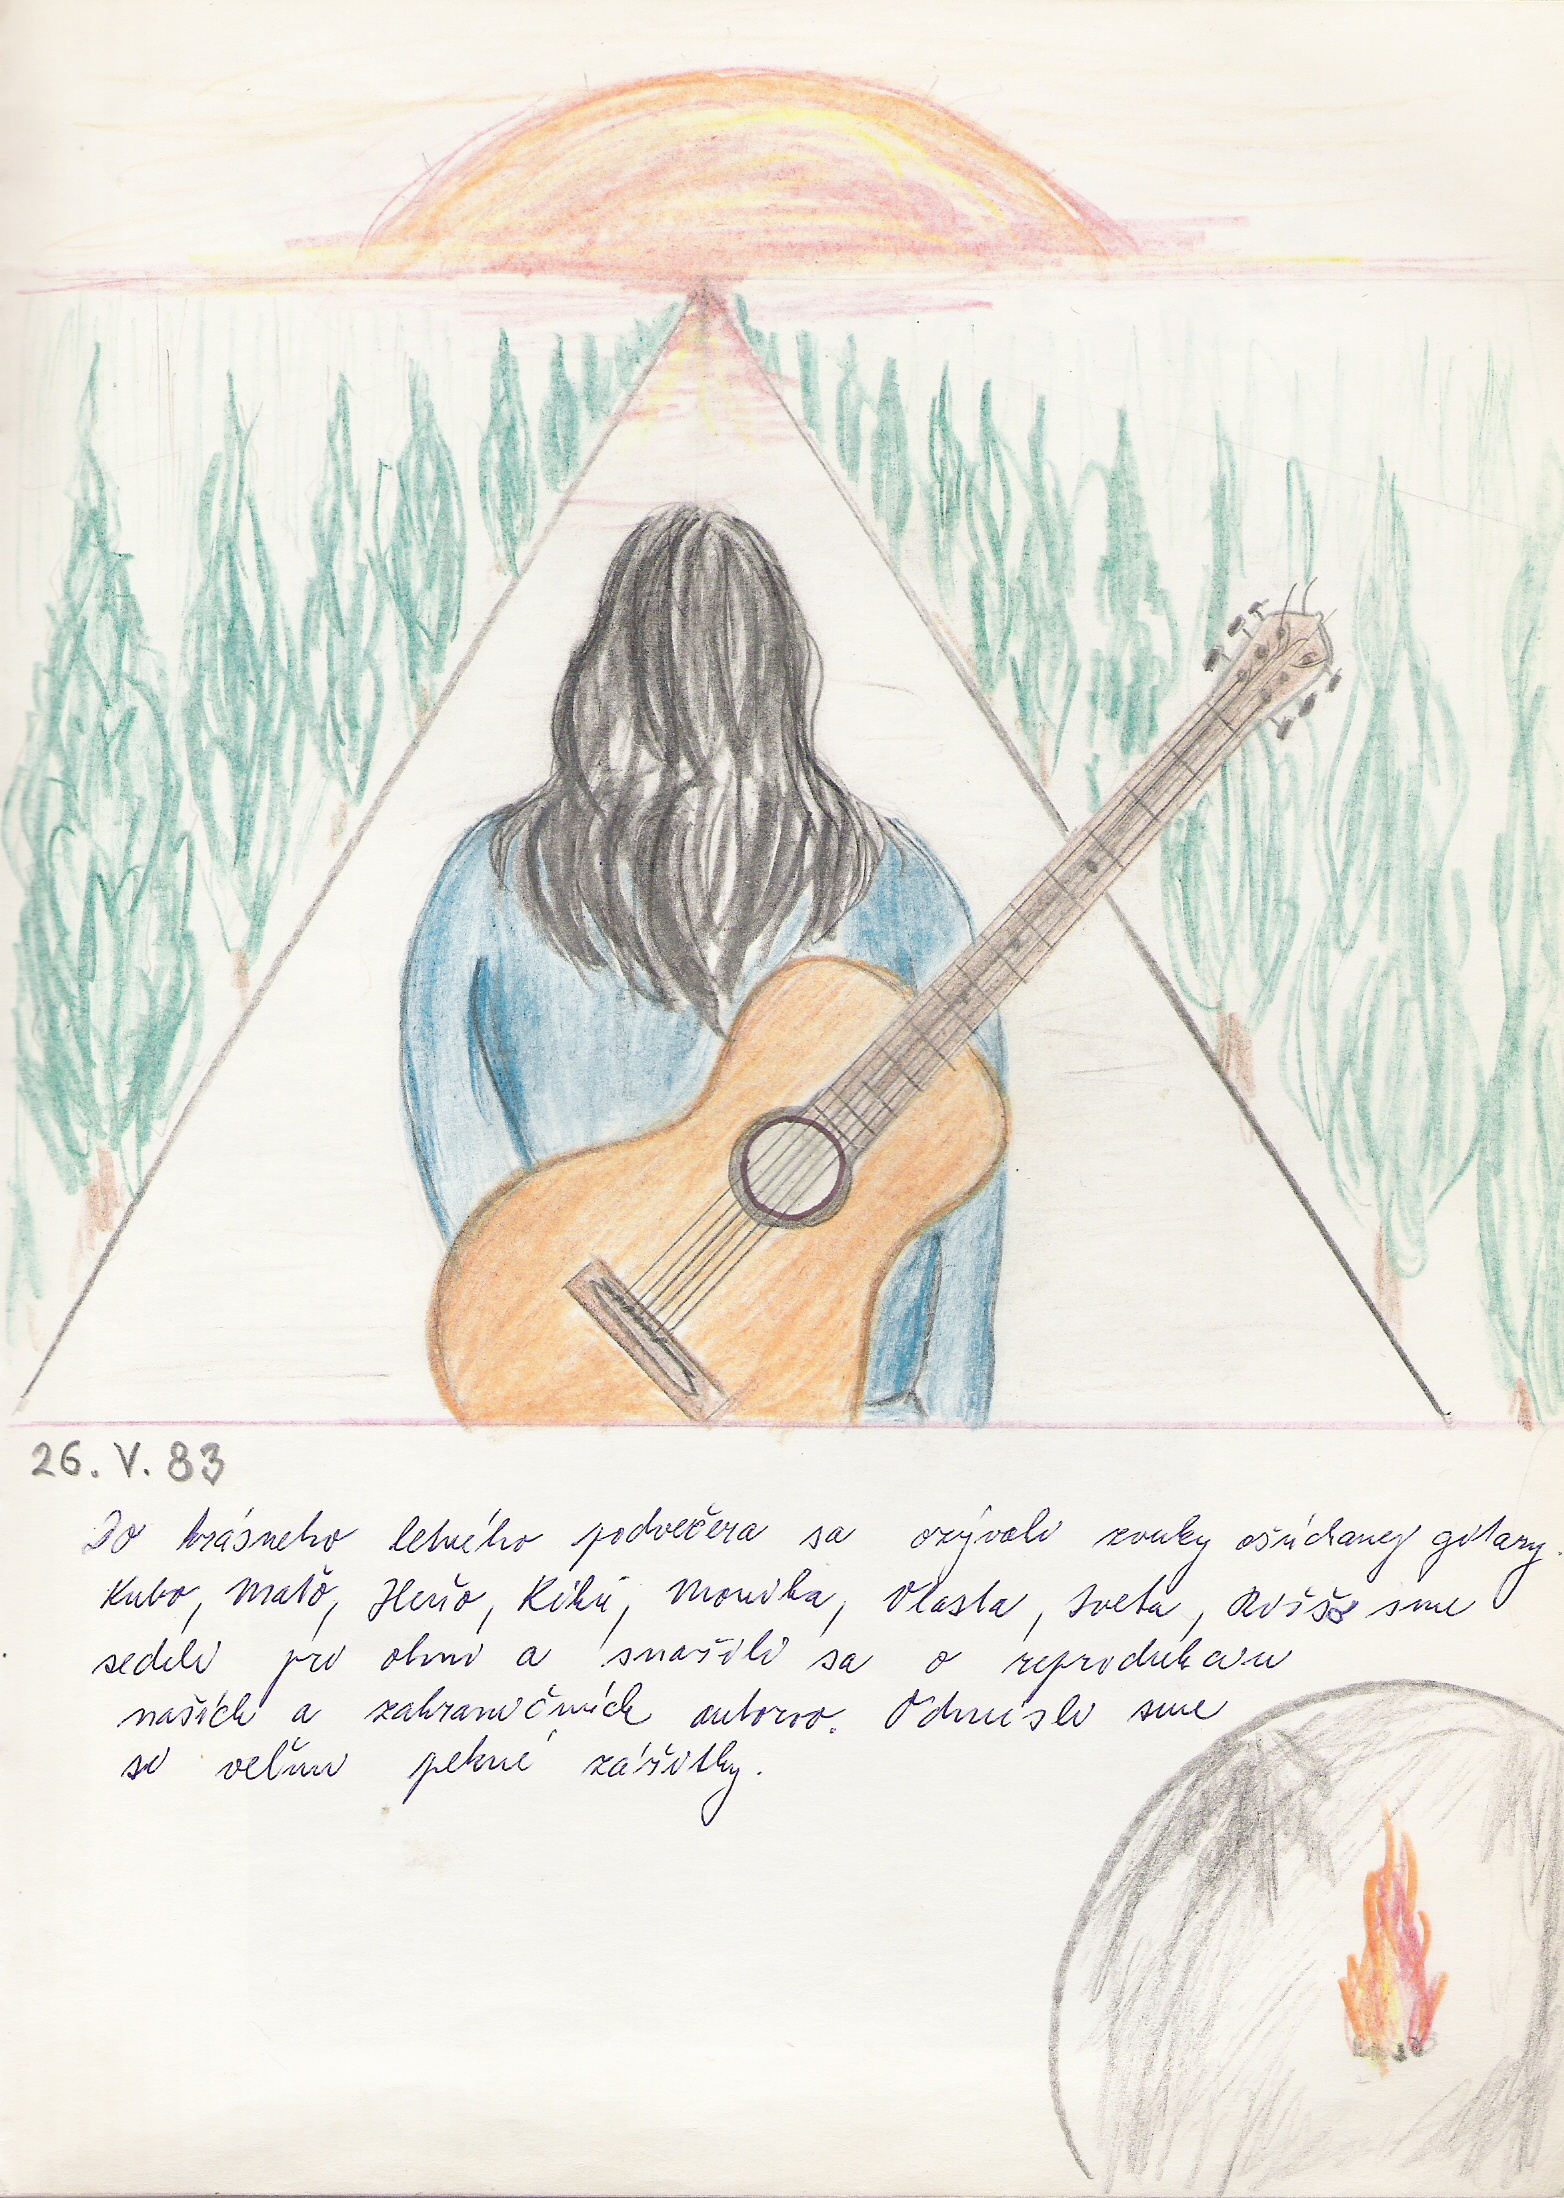 26. V. 83
Do krásneho letného podvečera sa ozývali zvuky ošúchanej gitary.
Kubo, Maťo, Heňo, Kiki, Monika, Vlasta, Iveta, sme
sedeli pri ohni a snažili sa o reprodukciu
našich a zahraničních autorov. Odniesli sme
si veľmi pekné zážitky.